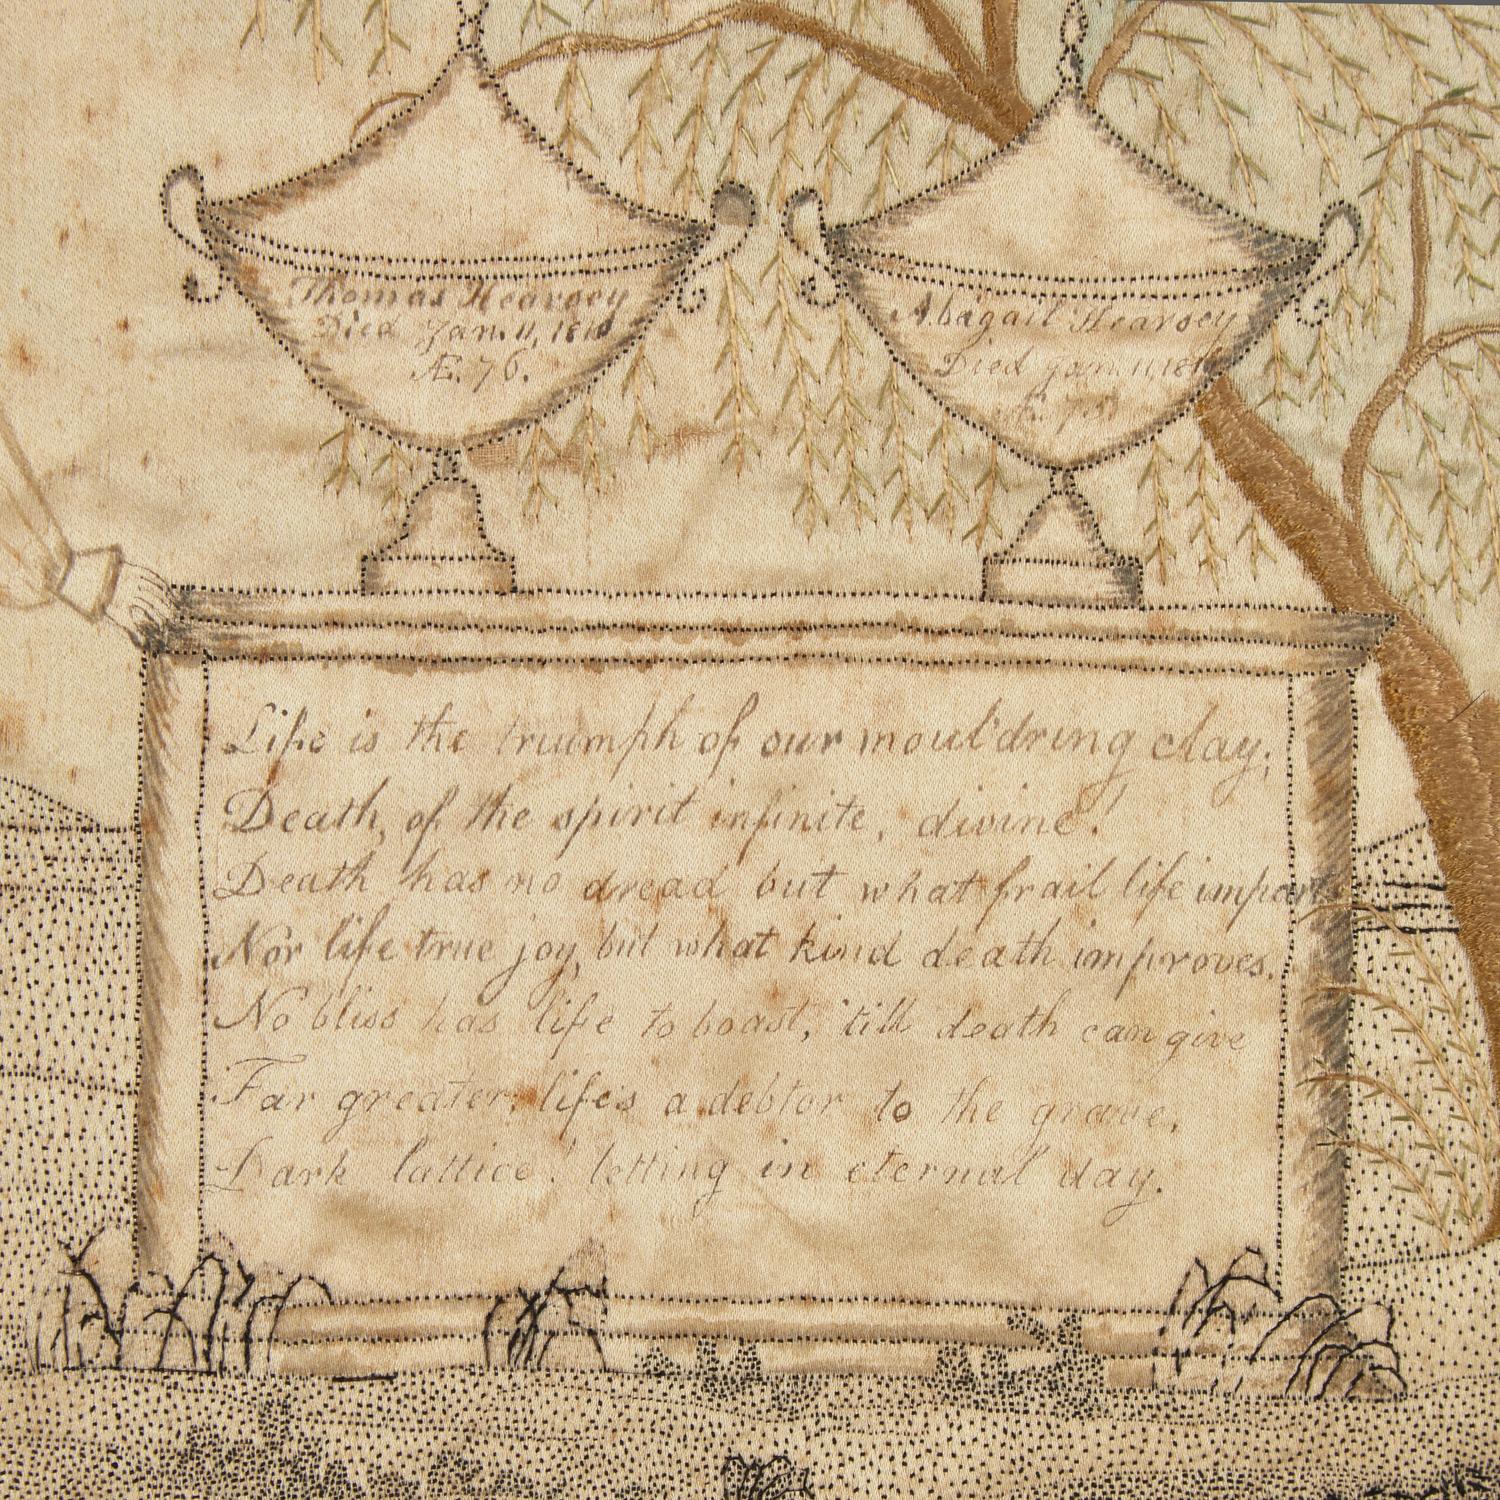 Thomas Hearsey
Died Jan. 11, 181
Æ. 76.
Abigail Hearsey
Died Jan. 11, 181
Life is the triumph of our mould'ring clay;
Death, of the spirit infinite, divine!
Death has no dread but what frail life imparts
Nor life true joy, but what kind death improves.
No bliss has life to boast, 'till death can give
Far greater; life's a debtor to the grave,
Dark lattice! letting in eternal day.